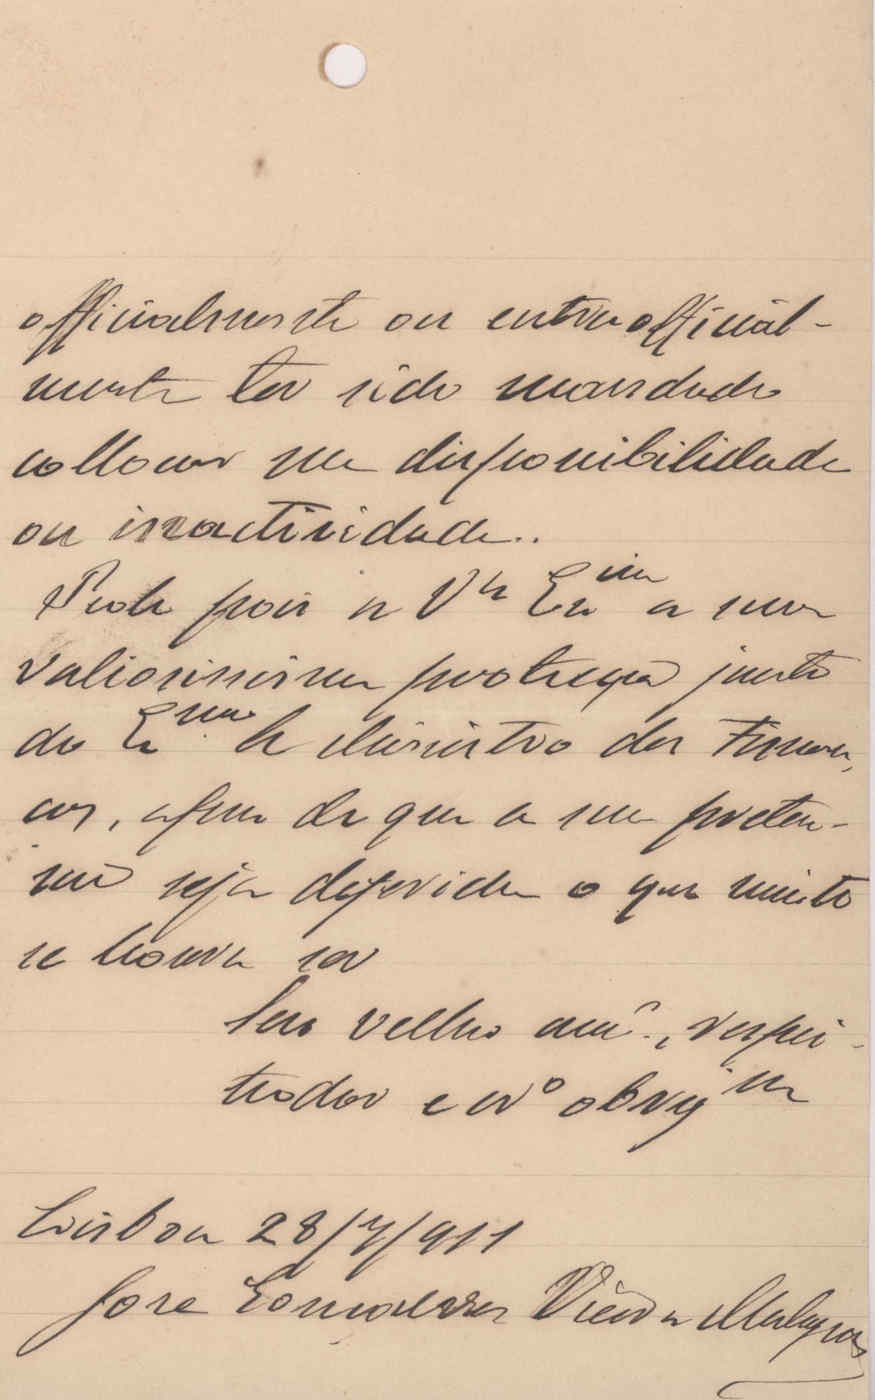 officialmente ou extra official-
mente ter sido mandado
collocar na disponibilidade
ou inactividade..
Pede pois a Vª Exma a sua
valiosissima protecção junto
do Exmo Sr Ministro das Finan,
ças, afim de que a sua preten-
são seja deferida o que muito
se honra ser
Seu velho amº., respei-
tador e crº obrigmo
Lisboa 28/7/911
Jose Gonçalves Vieira